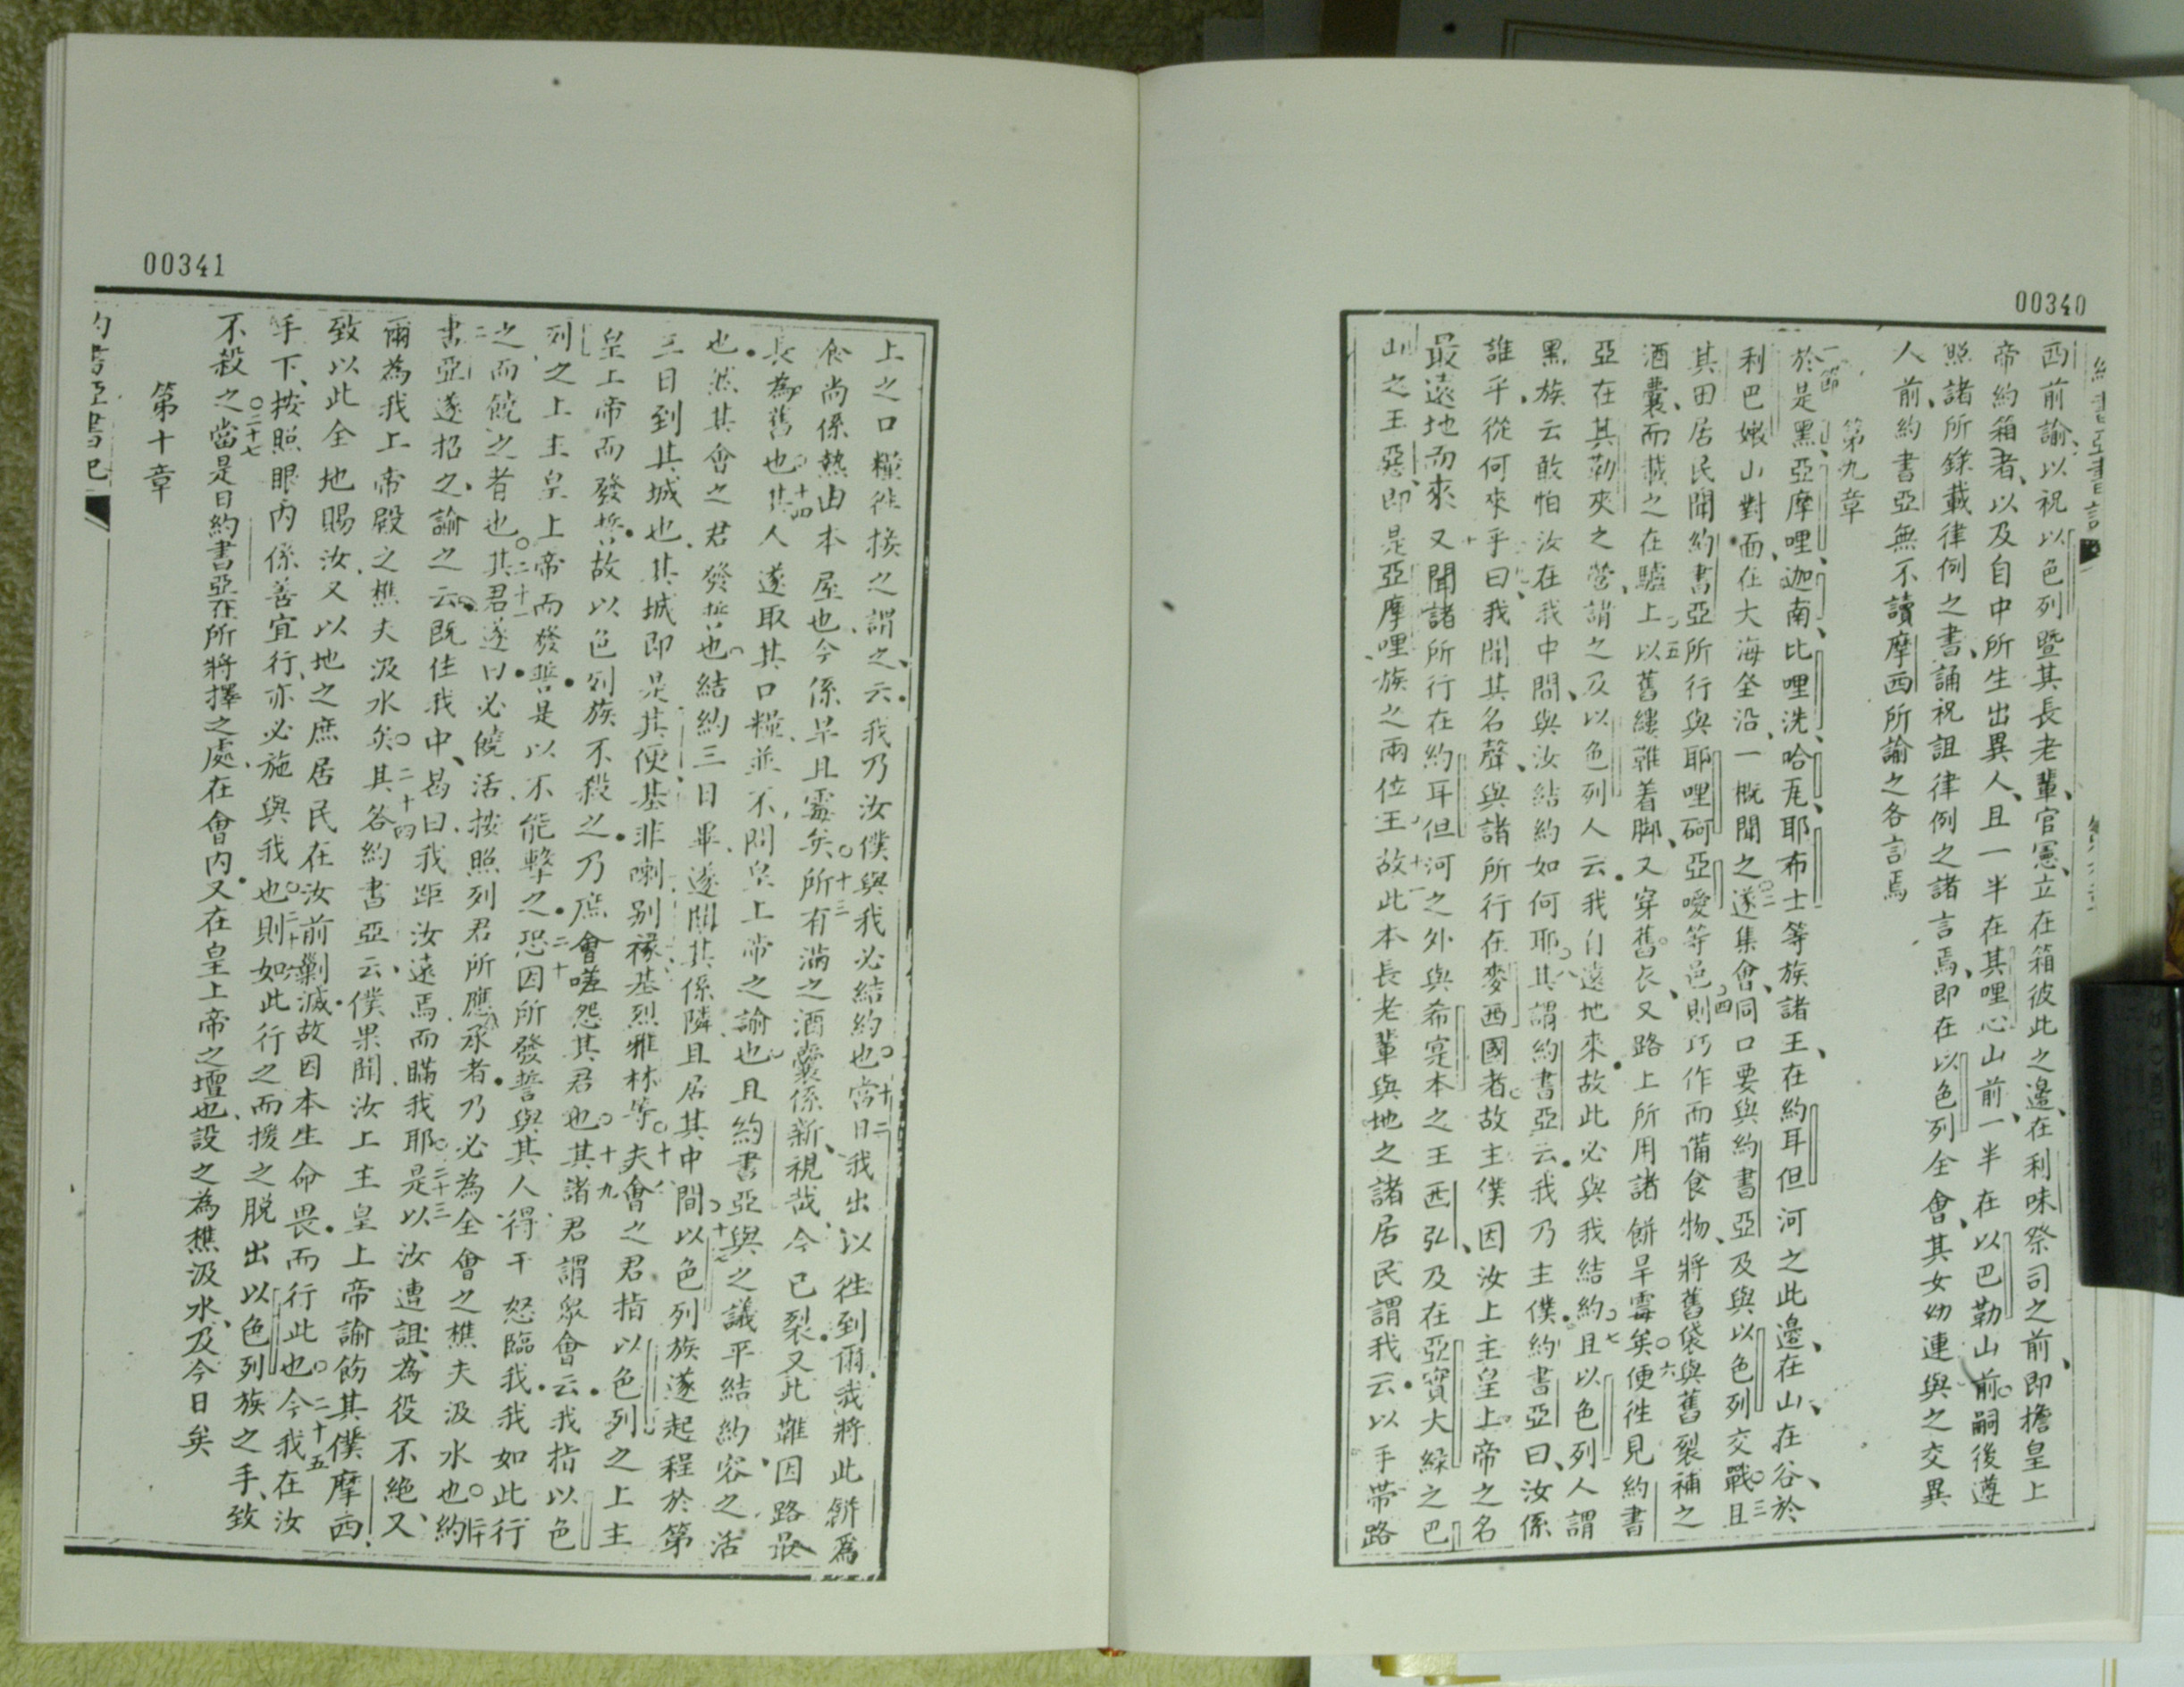 00340
西前諭以祝以色列暨其長老輩、官憲、立在箱彼此之邊、在利味祭司之前、即擔皇上
帝約箱者、以及自中所生出異人、且一半在其哩心山前、一半在以巴勒山前。嗣後遵
照諸所錄載律例之書、誦祝詛律例之諸言焉、即在以色列全會、其女幼連與之交異
人前、約書亞無不讀摩西所諭之各言焉
第九章
一節 於是黑、亞摩哩、迦南、比哩洗、哈冺、耶布士等族諸王、在約耳但河之此邊、在山、在谷、於
利巴嫩山對面、在大海全沿、一概聞之。二遂集會、同口要與約書亞及與以色列交戰。三且
其田居民聞約書亞所行與耶哩砢亞噯等邑、四則巧作而備食物、將舊袋與舊裂補之
酒囊、而載之在驢上、五以舊縷鞋着脚、又穿舊衣、又路上所用諸餅旱霉矣。六便徃見約書
亞在其勒夾之營、謂之及以色列人云、我自遠地來、故此必與我結約。七且以色列人謂
黑族云敢怕汝在我中間、與汝結約如何耶。八其謂約書亞云、我乃主僕、約書亞曰、汝係
誰乎、從何來乎曰、我聞其名聲、與諸所行在麥西國者、故主僕因汝上主皇上帝之名
最遠地而來、十又聞諸所行在約耳但河之外與希寔本之王西弘、及在亞實大綠之巴
山之王惡、即是亞摩哩族之兩位王。十一故此本長老輩與地之諸居民謂我云、以手帶路
00341
上之口糧徃接之、謂之云、我乃汝僕、與我必結約也。十二當日我出以徃到爾、我將此餅為
食尚係熱由本屋也、今係旱且霉矣。十三所有滿之酒囊係新、視哉、今已裂、又此鞋、因路最
長為舊也。十四其人遂取其口糧、並不問皇上帝之諭也且約書亞與之議平結約容之活
也、然其會之君發誓也、結約三日畢、遂聞其係隣且居其中間。十七以色列族遂起程於第
三日到其城也、其城即是其便基非喇别祿基烈雅林等。十八夫會之君指以色列之上主
皇上帝而發誓、故以色列族不殺之、乃庶會嗟怨其君也。十九其諸君謂眾會云、我指以色
列之上主皇上帝而發誓、是以不能擊之、二十恐因所發誓與其人、得干怒臨我、我如此行
之而饒之者也。二十一其君遂曰必饒活、按照列君所應承者、乃必為全會之樵夫汲水也。二十二約
書亞遂招之、諭之云、既住我中、曷曰我距汝遠焉、而瞞我耶。二十三是以汝遭詛、為役不絕、又
爾為我上帝殿之樵夫汲水矣。二十四其答約書亞云、僕果聞汝上主皇上帝諭飭其僕摩西、
致以此全地賜汝、又以地之庶居民在汝前剿滅、故因本生命畏、而行此也。二十五今我在汝
手下、按照眼內係善宜行、亦必施與我也。二十六則如此行之而援之脱出以色列族之手、致
不殺之。二十七當是日約書亞在所將擇之處、在會內、又在皇上帝之壇也、設之為樵汲水、及今日矣
第十章